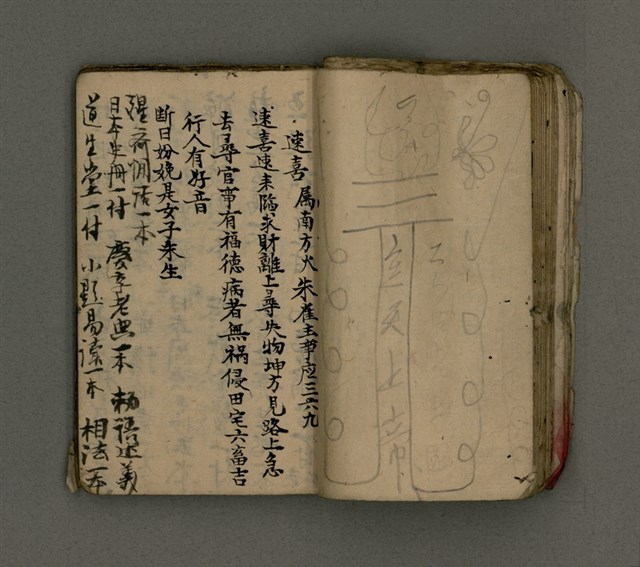 玄天上帝
速喜 属南方火朱雀主事应三六九
速喜速来臨求財離上尋失物坤方見路上急
去尋官事有福德病者無禍侵田宅六畜吉
行人有好音
断曰妢娩是女子来生
一本
日本史冊一付 慶 老典一本 勅語述義
道生堂一付 小題易讀一本 相法一本